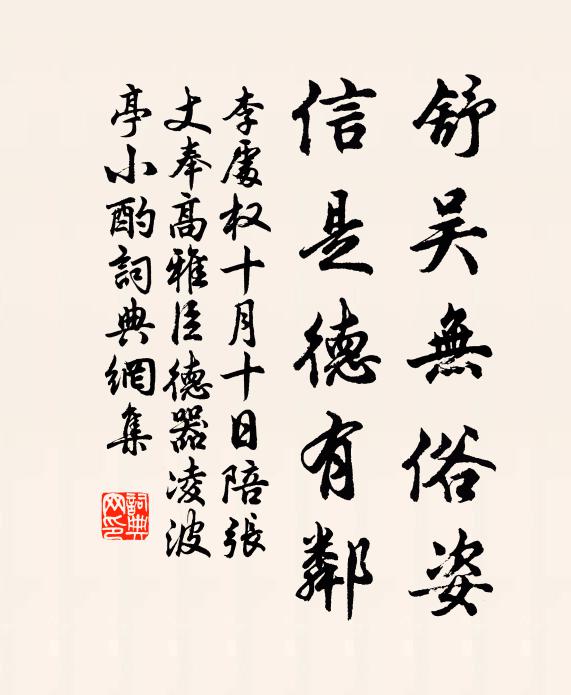 舒吴無俗姿
信是德有鄰
李處权十月十日陪張
丈奉高雅臣德器凌波
亭小酌詞典網集
詞典网印